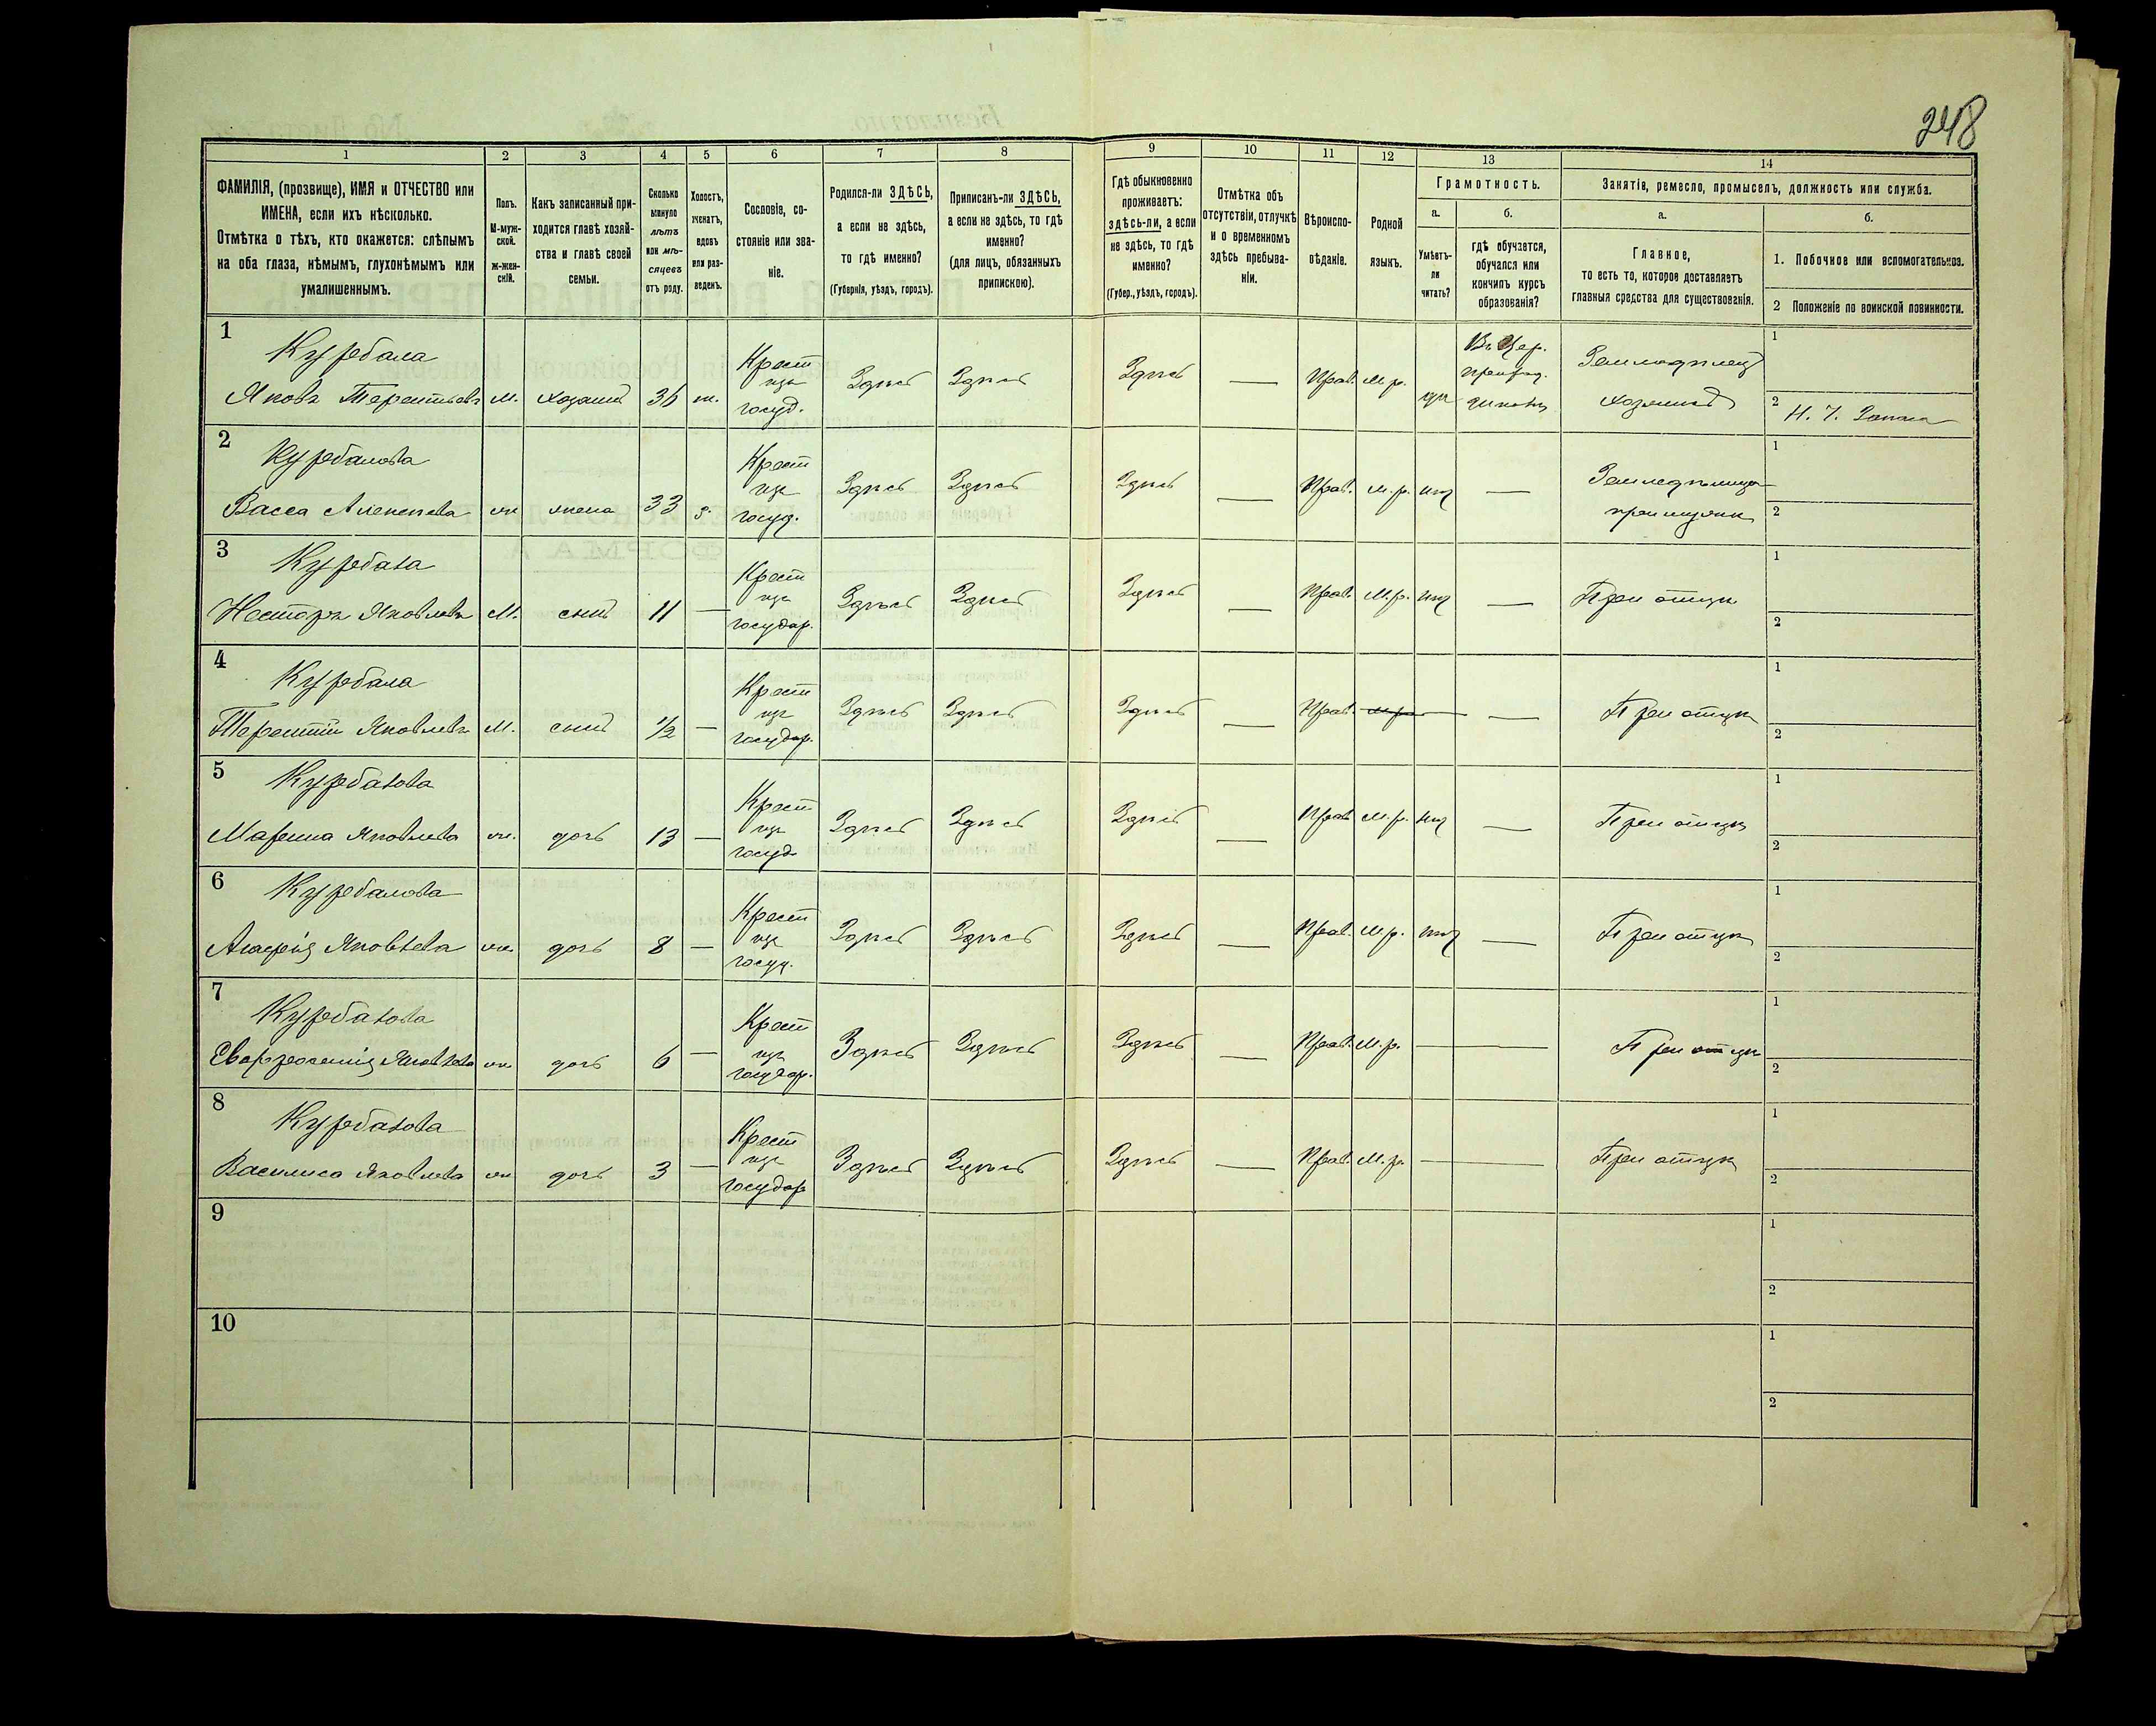 248
1 2 3 4 5 6 7 8 9 10 11 12 13 14
ФАМИЛІЯ, (прозвище), ИМЯ и ОТЧЕСТВО или
ИМЕНА, если ихъ нѣсколько.
Отмѣтка о тѣхъ, кто окажется: слѣпымъ
на оба глаза, нѣмымъ, глухонѣмымъ или
умалишеннымъ.
Полъ.
М-муж-
ской.
ж-жен-
скій.
Какъ записанный при-
ходится главѣ хозяй-
ства и главѣ своей
семьи.
Сколько
минуло
лѣтъ
или мѣ-
сяцевъ
отъ роду.
Холостъ,
женатъ,
вдовъ
или раз-
веденъ.
Сословіе, со-
стояніе или зва-
ніе.
Родился-ли ЗДѢСЬ,
а если не здѣсь,
то гдѣ именно?
(Губернія, уѣздъ, городъ).
Приписанъ-ли ЗДѢСЬ,
а если не здѣсь, то гдѣ
именно?
(для лицъ, обязанныхъ
припискою).
Гдѣ обыкновенно
проживаетъ:
здѣсь-ли, а если
не здѣсь, то гдѣ
именно?
(Губер., уѣздъ, городъ).
Отмѣтка объ
отсутствіи, отлучкѣ
и о временномъ
здѣсь пребыва-
ніи.
Вѣроиспо-
вѣданіе.
Родной
языкъ.
Грамотность.
а.
Умѣетъ-
ли
читать?
б.
гдѣ обучается,
обучался или
кончилъ курсъ
образованія?
Занятіе, ремесло, промыселъ, должность или служба.
а.
Главное,
то есть то, которое доставляетъ
главныя средства для существованія.
б.
1. Побочное или вспомогательное.
2 Положеніе по воинской повинности.
1
Яковъ Терентьевъ м. хозяинъ 36 ж.
Крест
изъ
госуд.
Здѣсь Здѣсь Здѣсь — Прав. М.р.
Земледѣлец
хозяинъ
1
2
2
Васса м. жена 33
Крест
изъ
госуд.
Здѣсь Здѣсь Здѣсь — Прав. м.р. —
при мужѣ
1
2
3
Несторъ Яковлевъ М. сынъ 11 —
Крест
изъ
государ.
Здѣсь Здѣсь Здѣсь — Прав. М.р. — При отцѣ
1
2
4
Терентій Яковлевъ М. сынъ 1/2 —
Крест
изъ
государ.
Здѣсь Здѣсь Здѣсь — Прав. — При отцѣ
1
2
5
Яковлева ж. дочь 13 —
Крест
изъ
госуд
Здѣсь Здѣсь Здѣсь — Прав М.р. — При отцѣ
1
2
6
Яковлева ж. дочь 8 —
Крест
изъ
госуд.
Здѣсь Здѣсь Здѣсь — Прав. М.р. — При отцѣ
1
2
7
Яковлева ж. дочь 6 —
Крест
изъ
государ.
Здѣсь Здѣсь Здѣсь — Прав. М.р. — При отцѣ
1
2
8
Василиса Яковлева ж дочь 3 —
Крест
изъ
государ
Здѣсь Здѣсь Здѣсь — Прав. М.р. — При отцѣ
1
2
9
1
2
10
1
2